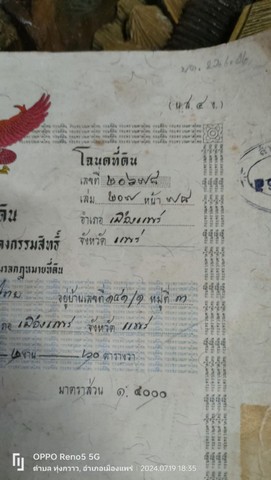 (น.ส. ๔ จ.)
โฉนดที่ดิน
เลขที่ ๒๐๖๗๘
เล่ม ๒๐๗ หน้า ๗๘
อำเภอ เมืองแพร่
จังหวัด แพร่
ดิน
งกรรมสิทธิ์
มวลกฎหมายที่ดิน
ไทย อยู่บ้านเลขที่ ๑๔๑/๑ หมู่ที่ ๓
เภอ เมืองแพร่ จังหวัด แพร่
๒ งาน ๖๐ ตารางวา
มาตราส่วน ๑:๕๐๐๐
OPPO Reno5 5G
ตำบล ทุ่งกวาว, อำเภอเมืองแพร่ | 2024.07.19 18:55